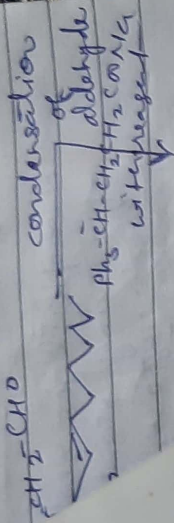 CH2-CHO
condensation
of
aldehyde
Ph3-CH-CH2CH2COONa
with reagent